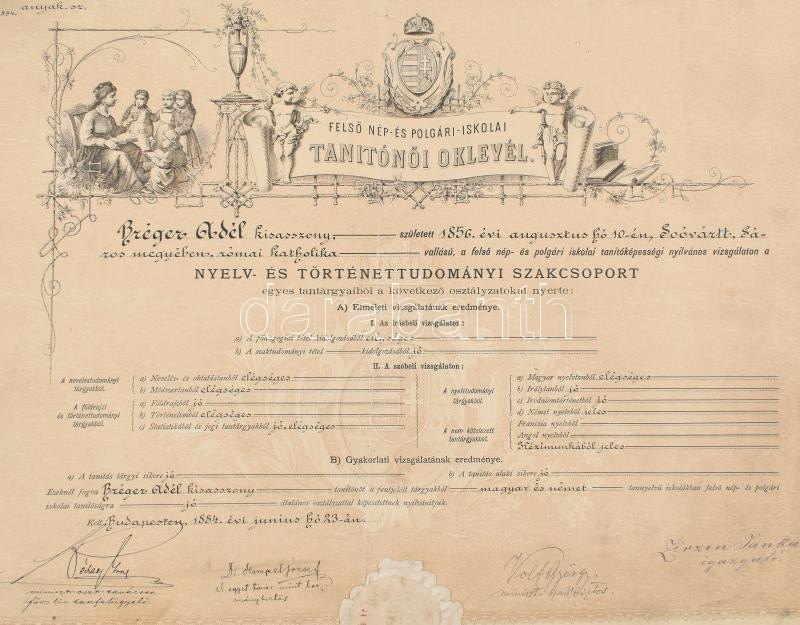 884. anyak. sz.
FELSŐ NÉP- ÉS POLGÁRI-ISKOLAI
TANITÓNŐI OKLEVÉL.
Bréger Adél kisasszony, született 1856. évi augusztus hó 10-én, Soóvártt, Sá-
ros megyében, római katholika vallású, a felső nép- és polgári iskolai tanítóképességi nyilvános vizsgálaton a
NYELV- ÉS TÖRTÉNETTUDOMÁNYI SZAKCSOPORT
egyes tantárgyaiból a következő osztályzatokat nyerte:
A) Elméleti vizsgálatának eredménye.
I. Az írásbeli vizsgálaton:
a) A pädagogiai tétel kidolgozásából elégséges
b) A szaktudományi tétel kidolgozásából jó
II. A szóbeli vizsgálaton:
A neveléstudományi tárgyakból.
a) Nevelés- és oktatástanból elégséges
b) Módszertanból elégséges
A földrajzi és történettudományi tárgyakból.
a) Földrajzból jó
b) Történelemből elégséges
c) Statistikából és jogi tantárgyakból jó, elégséges
A nyelvtudományi tárgyakból.
a) Magyar nyelvtanból elégséges
b) Irálytanból jó
c) Irodalomtörténetből jó
d) Német nyelvből jeles
A nem kötelezett tantárgyakból.
Franczia nyelvből
Angol nyelvből
Kézimunkából jeles
B) Gyakorlati vizsgálatának eredménye.
a) A tanítás tárgyi sikere jó
b) A tanítás alaki sikere jó
Ezeknél fogva Bréger Adél kisasszony tanítónőt a fentjelölt tárgyakból magyar és német tannyelvű iskolákban felső nép- és polgári
iskolai tanítóságra jó általános osztályzattal képesítettnek nyilvánítjuk.
Kelt Budapesten, 1884. évi junius hó 23-án.
Dr Hampel József
Volf György
Zirzen Janka
igazgató.
darabanth